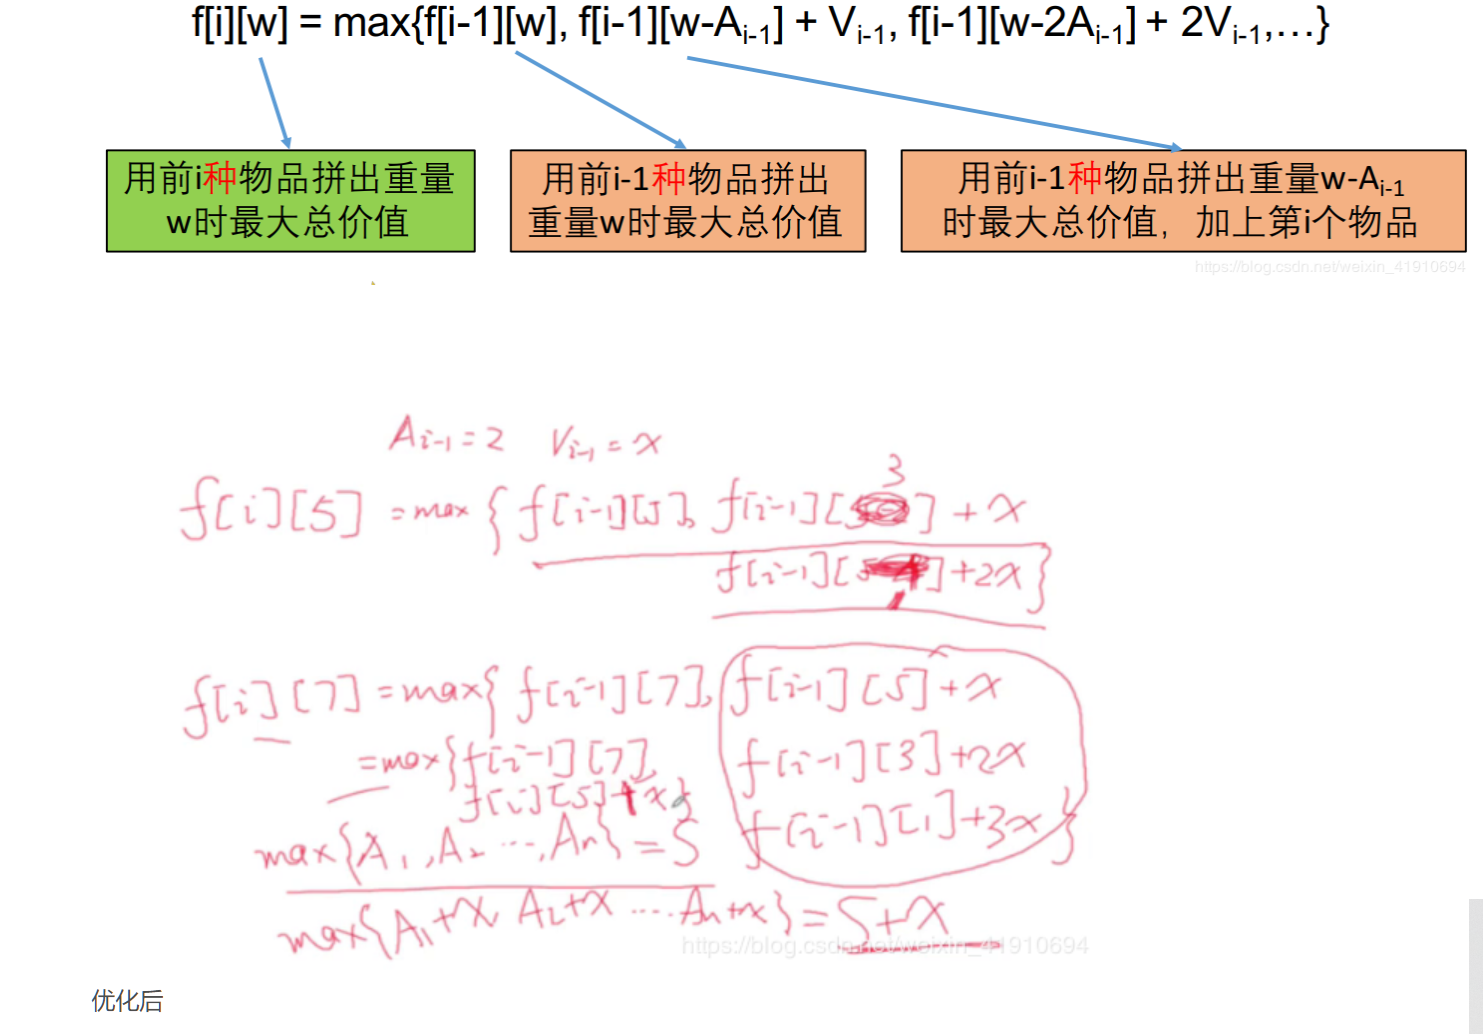 f[i][w] = max{f[i-1][w], f[i-1][w-Ai-1] + Vi-1, f[i-1][w-2Ai-1] + 2Vi-1,…}
用前i种物品拼出重量
w时最大总价值
用前i-1种物品拼出
重量w时最大总价值
用前i-1种物品拼出重量w-Ai-1
时最大总价值，加上第i个物品
https://blog.csdn.net/weixin_41910694
Ai-1=2 Vi-1=x
3
f[i][5] =max{f[i-1][5], f[i-1][ ]+x
f[i-1][ ]+2x}
1
f[i][7]=max{f[i-1][7], f[i-1][5]+x
=max{f[i-1][7], f[i-1][3]+2x
f[i][5]+x} f[i-1][1]+3x}
max{A1,A2…,An}=S
max{A1+x, A2+x ….An+x}=S+x
https://blog.csdn.net/weixin_41910694
优化后